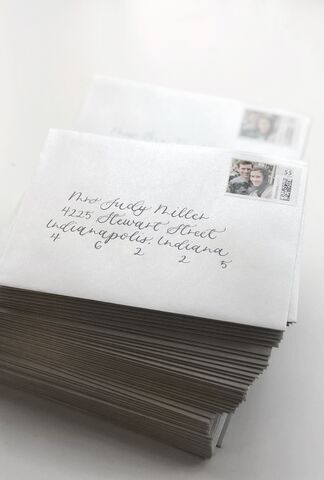 55
Mrs Judy Miller
4225 Stewart Street
Indianapolis, Indiana
4 6 2 2 5